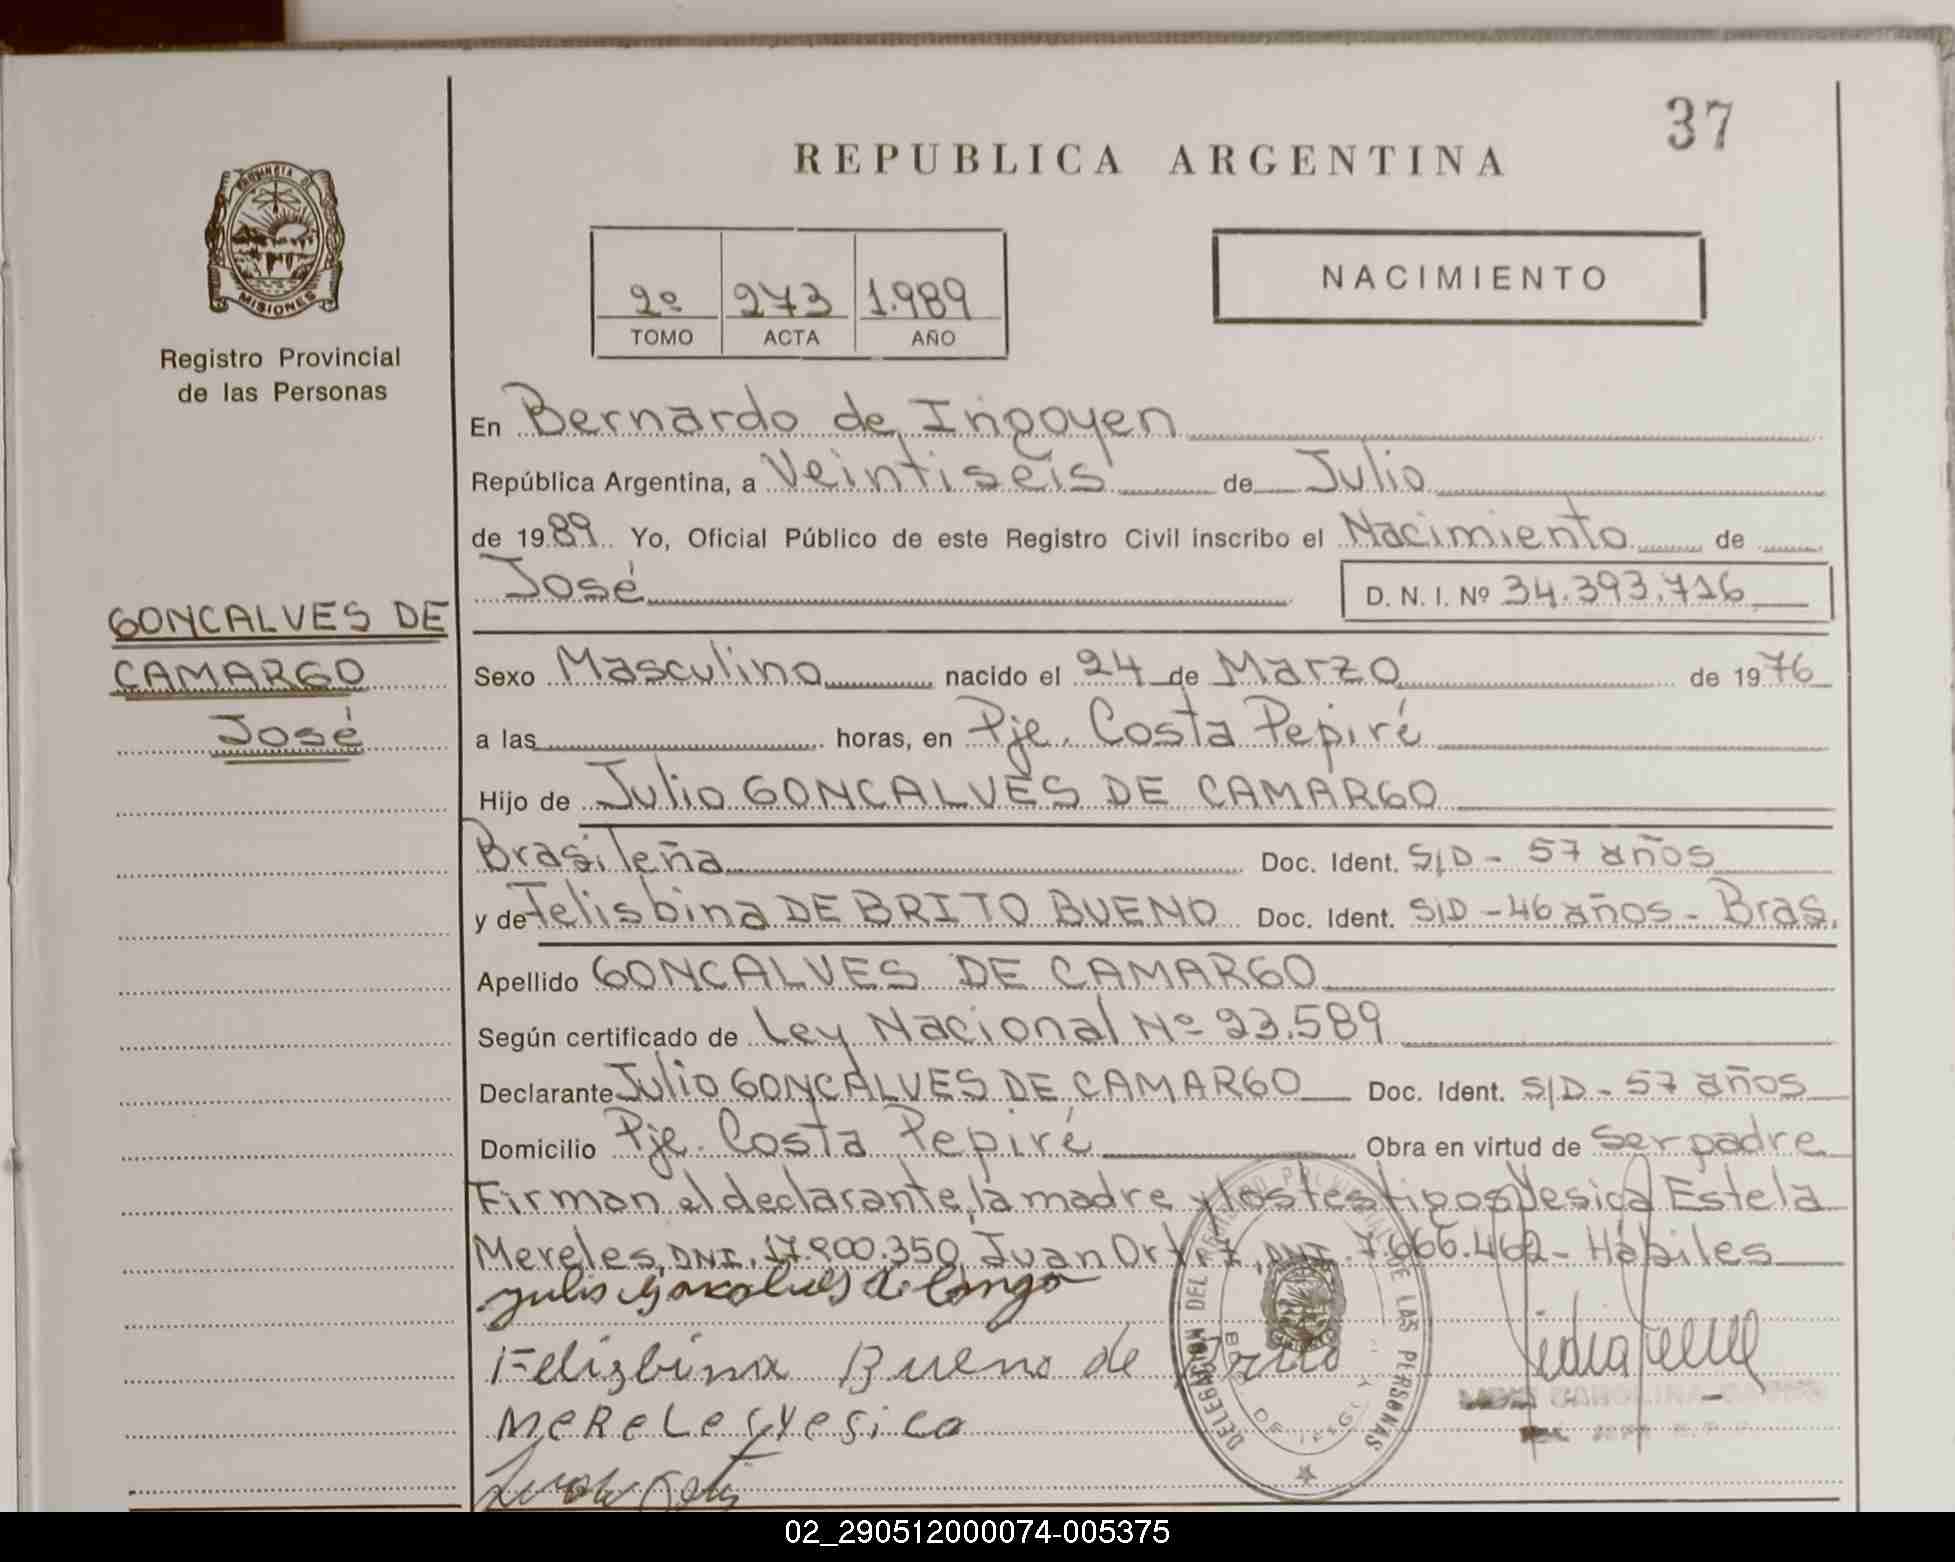 37
REPUBLICA ARGENTINA
PROVINCIA DE
MISIONES
Registro Provincial
de las Personas
2º 273 1.989
TOMO ACTA AÑO
NACIMIENTO
En Bernardo de Irigoyen
República Argentina, a Veintiseis de Julio
de 1989 Yo, Oficial Público de este Registro Civil inscribo el Nacimiento de
José D. N. I. Nº 34.393.716
GONCALVES DE
CAMARGO
José
Sexo Masculino nacido el 24 de Marzo de 1976
a las horas, en Pje. Costa Pepiré
Hijo de Julio GONCALVES DE CAMARGO
Brasileña Doc. Ident. S/D - 57 años
y de Felisbina DE BRITO BUENO Doc. Ident. S/D - 46 años - Bras.
Apellido GONCALVES DE CAMARGO
Según certificado de Ley Nacional Nº 23.589
Declarante Julio GONÇALVES DE CAMARGO Doc. Ident. S/D - 57 años
Domicilio Pje. Costa Pepiré Obra en virtud de ser padre
Firman el declarante, la madre y los testigos Yesica Estela
Mereles, DNI. 17.900.350, Juan Ortiz, DNI. 7.666.462 - Hábiles
Felizbina Bueno de Brito
MeReLes Yesica
DELEGACION DEL REGISTRO PROVINCIAL DE LAS PERSONAS
02_290512000074-005375